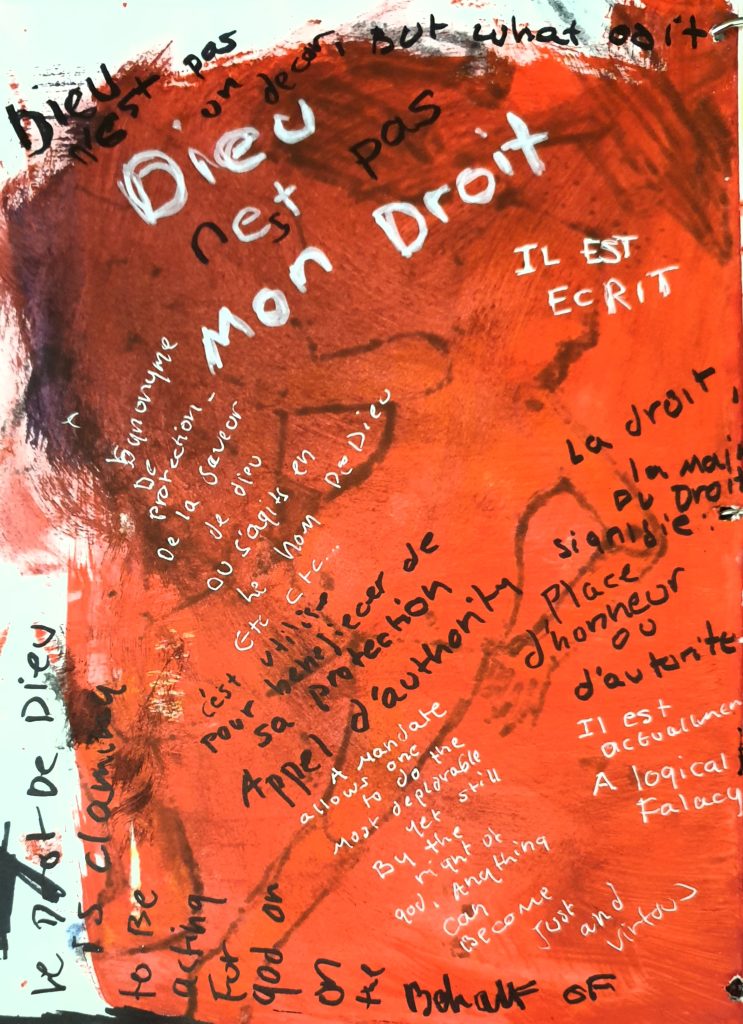 Dieu
n'est pas
un decor, But what os it
Dieu
nest pas
Mon Droit
IL EST
ECRIT
Synonyme
De
protection-
De la saveur
de dieu
ou s'agits en
le nom De Dieu
Etc Etc...
La droit,
la mai
Du Droit
signifie:
Place
d'honneur
ou
d'autorite
c'est utilise
pour beneficer de
sa protection
Appel d'authority
Il est
actuallmen
A logical
Falacy
A Mandate
allows one
to do the
Most deplorable
yet still
By the
right of
god. Anything
can
Become
just and
virtous
Le Droot De Dieu
is claiming
to Be
acting
For
god on
on
the
Behalf OF